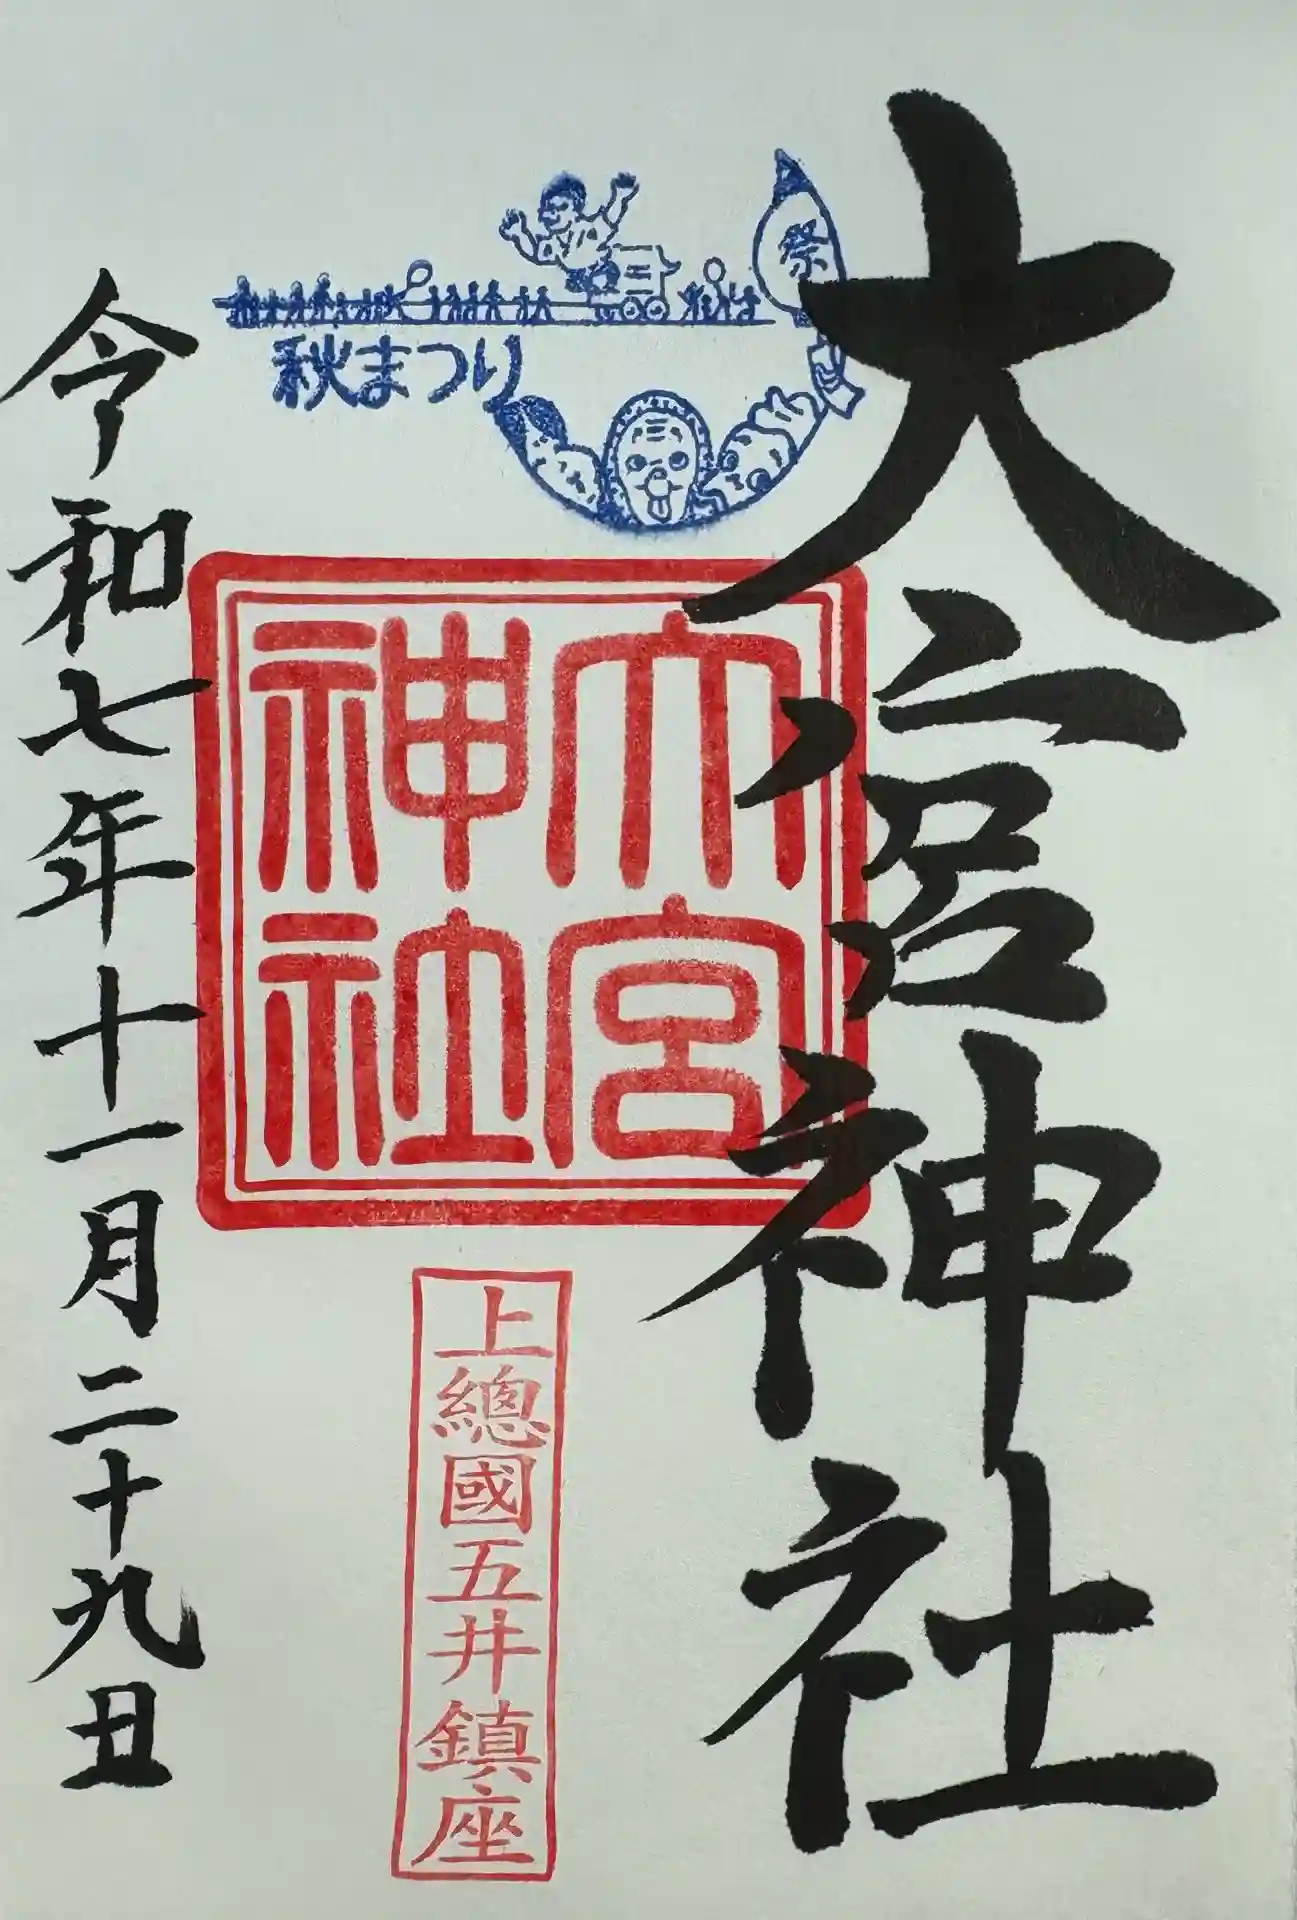 大宮神社
祭
秋まつり
大宮
神社
上總國五井鎮座
令和七年十一月二十九丑